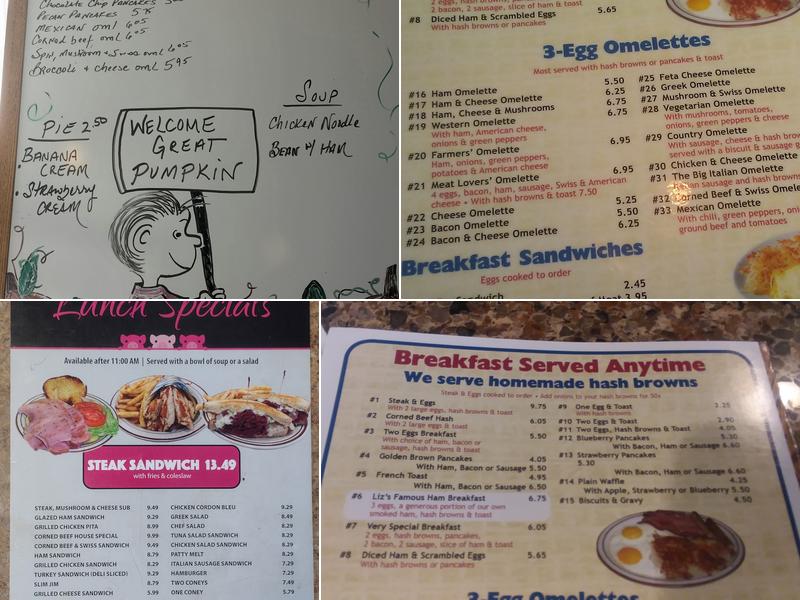 Chocolate Chip Pancakes
Pecan Pancakes 5.75
Mexican oml 6.05
Corned beef oml 6.05
Spin, Mushroom + Swiss oml 6.05
Broccoli + cheese oml 5.95
Pie 2.50
• Banana
Cream
• Strawberry
Cream
Welcome
Great
Pumpkin
Soup
Chicken Noodle
Bean w/ Ham
2 eggs, hash browns, pancakes,
2 bacon, 2 sausage, slice of ham & toast
#8 Diced Ham & Scrambled Eggs 5.65
With hash browns or pancakes
3-Egg Omelettes
Most served with hash browns or pancakes & toast
#16 Ham Omelette 5.50
#17 Ham & Cheese Omelette 6.25
#18 Ham, Cheese & Mushrooms 6.75
#19 Western Omelette 6.75
With ham, American cheese,
onions & green peppers
#20 Farmers' Omelette 6.95
Ham, onions, green peppers,
potatoes & American cheese
#21 Meat Lovers' Omelette 6.95
4 eggs, bacon, ham, sausage, Swiss & American
cheese • With hash browns & toast 7.50
#22 Cheese Omelette 5.25
#23 Bacon Omelette 5.50
#24 Bacon & Cheese Omelette 6.25
#25 Feta Cheese Omelette
#26 Greek Omelette
#27 Mushroom & Swiss Omelette
#28 Vegetarian Omelette
With mushrooms, tomatoes,
onions, green peppers & cheese
#29 Country Omelette
With sausage, cheese & hash brow
served with a biscuit & sausage g
#30 Chicken & Cheese Omelette
#31 The Big Italian Omelette
sausage and hash browns
#32 Corned Beef & Swiss Omele
#33 Mexican Omelette
With chili, green peppers, oni
ground beef and tomatoes
Breakfast Sandwiches
Eggs cooked to order
Sandwich 2.45
3.95
Lunch Specials
Available after 11:00 AM | Served with a bowl of soup or a salad
STEAK SANDWICH 13.49
with fries & coleslaw
STEAK, MUSHROOM & CHEESE SUB 9.49
GLAZED HAM SANDWICH 9.29
GRILLED CHICKEN PITA 8.99
CORNED BEEF HOUSE SPECIAL 9.99
CORNED BEEF & SWISS SANDWICH 9.49
HAM SANDWICH 8.79
GRILLED CHICKEN SANDWICH 8.29
TURKEY SANDWICH (DELI SLICED) 9.29
SLIM JIM 8.79
GRILLED CHEESE SANDWICH 5.99
CHICKEN CORDON BLEU 9.29
GREEK SALAD 8.49
CHEF SALAD 8.29
TUNA SALAD SANDWICH 8.29
CHICKEN SALAD SANDWICH 8.29
PATTY MELT 8.29
ITALIAN SAUSAGE SANDWICH 7.29
HAMBURGER 7.29
TWO CONEYS 7.49
ONE CONEY 5.79
Breakfast Served Anytime
We serve homemade hash browns
Steak & Eggs cooked to order • Add onions to your hash browns for 50¢
#1 Steak & Eggs 9.75
With 2 large eggs, hash browns & toast
#2 Corned Beef Hash 6.05
With 2 large eggs & toast
#3 Two Eggs Breakfast 5.50
With choice of ham, bacon or
sausage, hash browns & toast
#4 Golden Brown Pancakes 4.05
With Ham, Bacon or Sausage 5.50
#5 French Toast 4.95
With Ham, Bacon or Sausage 6.50
#6 Liz's Famous Ham Breakfast 6.75
3 eggs, a generous portion of our own
smoked ham, hash browns & toast
#7 Very Special Breakfast 6.05
2 eggs, hash browns, pancakes,
2 bacon, 2 sausage, slice of ham & toast
#8 Diced Ham & Scrambled Eggs 5.65
With hash browns or pancakes
#9 One Egg & Toast 3.25
With hash browns
#10 Two Eggs & Toast 2.90
#11 Two Eggs, Hash Browns & Toast 4.05
#12 Blueberry Pancakes 5.30
With Bacon, Ham or Sausage 6.60
#13 Strawberry Pancakes
5.30
With Bacon, Ham or Sausage 6.60
#14 Plain Waffle 4.25
With Apple, Strawberry or Blueberry 5.50
#15 Biscuits & Gravy 4.50
3-Egg Omelettes